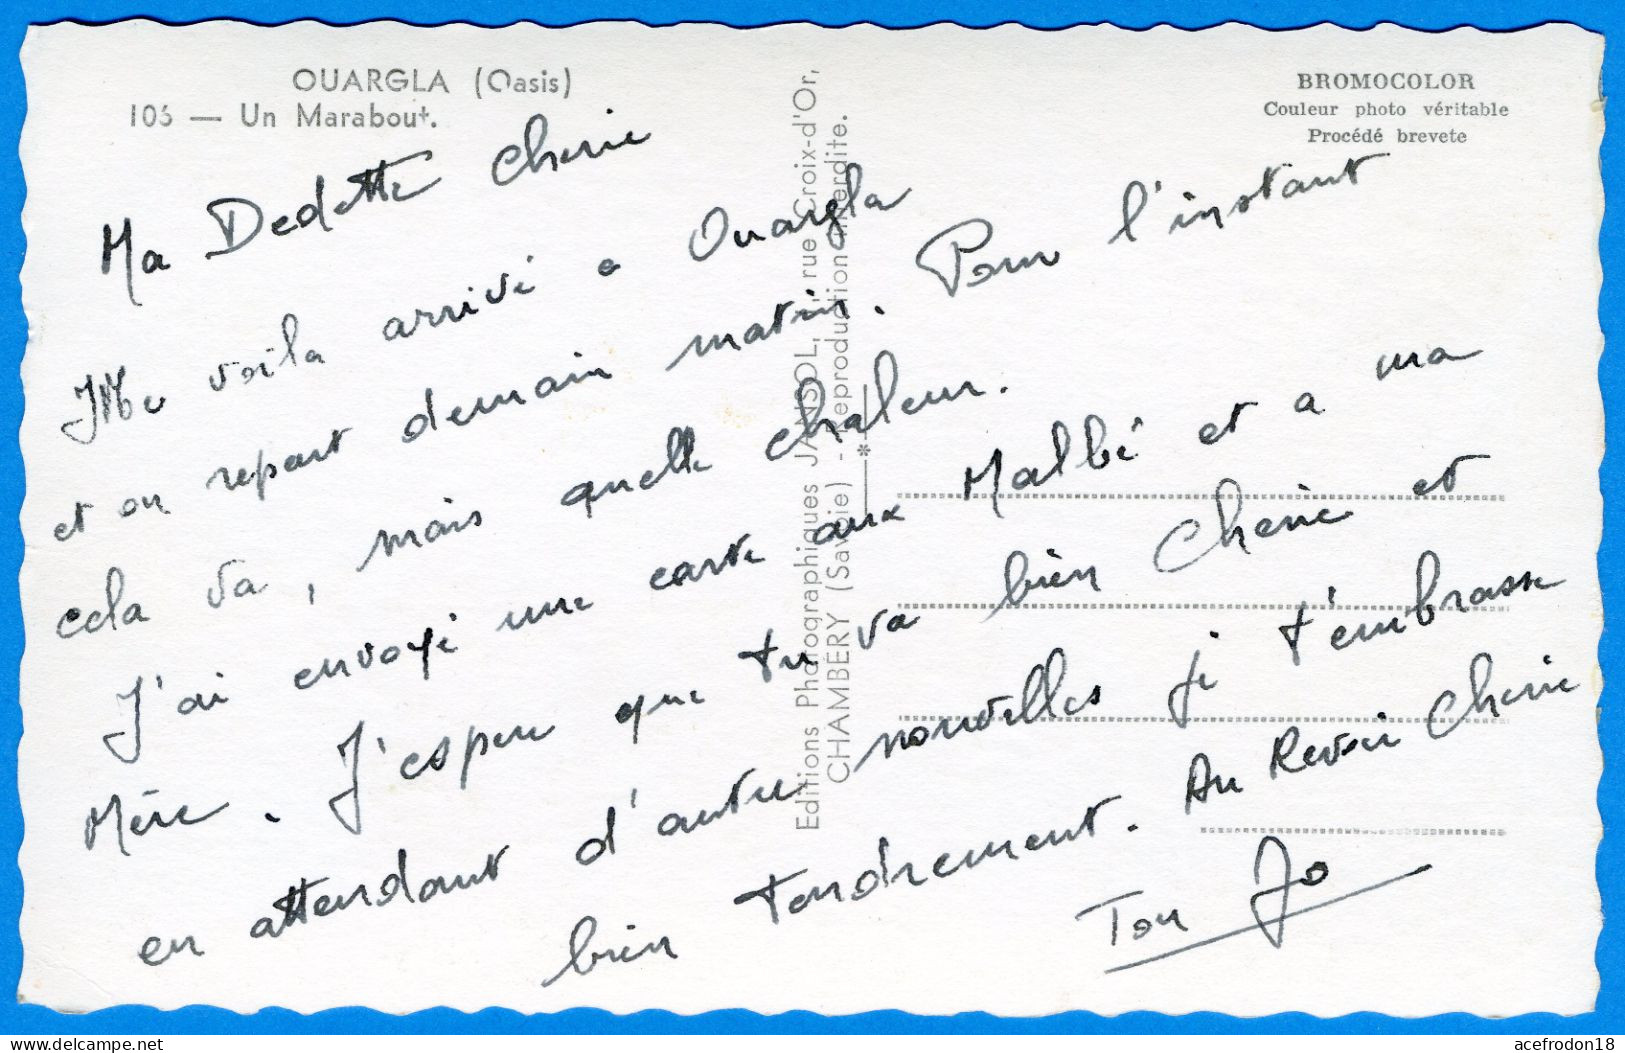 OUARGLA (Oasis)
106 — Un Marabout.
BROMOCOLOR
Couleur photo véritable
Procédé brevete
Editions Photographiques JANSOL, rue Croix-d'Or,
CHAMBÉRY (Savoie) - Reproduction interdite.
Ma Dedette Cherie
Me voila arrivé a Ouargla
et on repart demain matin. Pour l'instant
cela va, mais quelle chaleur.
J'ai envoyé une carte aux Malbé et a ma
Mère. J'espere que tu va bien Cherie et
en attendant d'autre nouvelles je t'embrasse
bien Tendrement. Au Revoir Cherie
Ton Jo
delcampe.net
acefrodon18